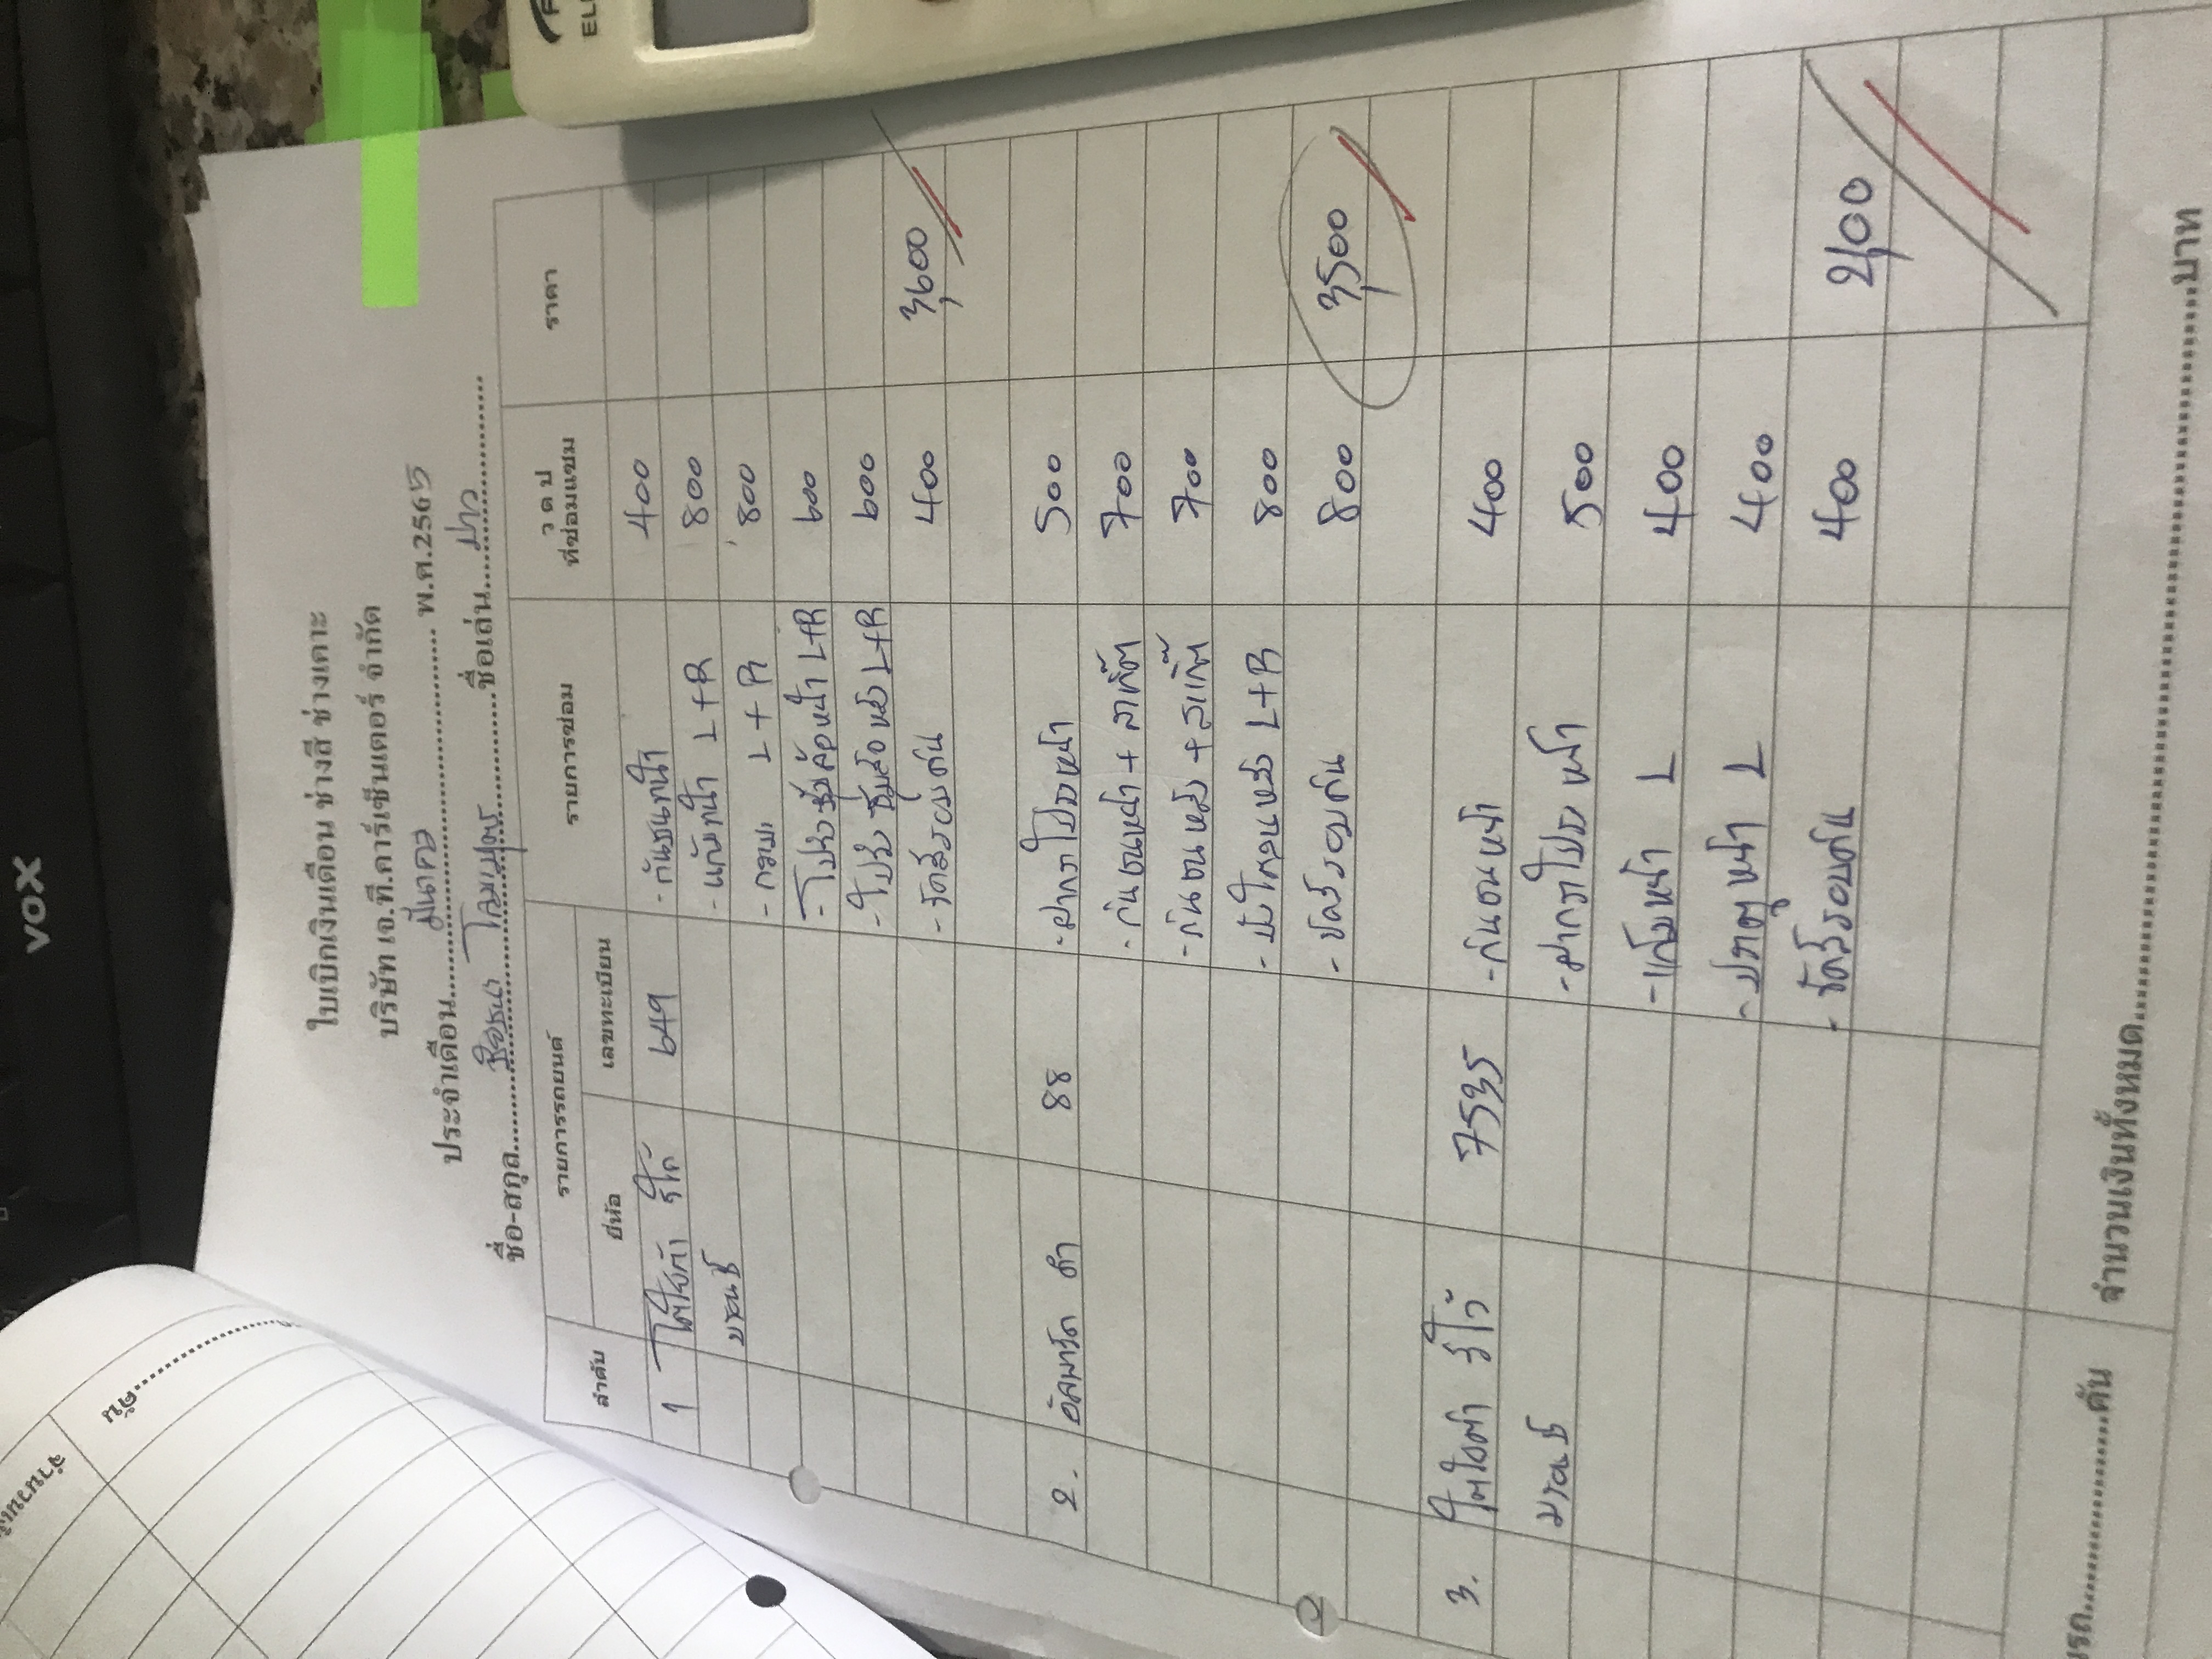 VOX
EL
ใบเบิกเงินเดือน ช่างสี ช่างเคาะ
บริษัท เจ.ที.คาร์เซ็นเตอร์ จำกัด
ประจำเดือน.....มีนาคม..... พ.ศ.2565
ชื่อ-สกุล..........ชื่อเล่น.....
ลำดับ รายการรถยนต์ รายการซ่อม ว ด ป ที่ซ่อมแซม ราคา
ยี่ห้อ เลขทะเบียน
1 โตโยต้า รีโว่ 649 - กันชนหน้า 400
บรอนซ์ - แก้มหน้า L+R 800
- กระบะ L+R 800
- โป่งซุ้มล้อหน้า L+R 600
- โป่งซุ้มล้อหลัง L+R 600
- ขัดสีรอบคัน 400 3,600
2. อัลพาร์ด ดำ 88 - ฝากระโปรงหน้า 500
- กันชนหน้า + สเกิ๊ต 700
- กันชนหลัง + สเกิ๊ต 700
- บังโคลนหลัง L+R 800
- ขัดสีรอบคัน 800 3,500
3. โตโยต้า รีโว่ 7535 - กันชนหน้า 400
บรอนซ์ - ฝากระโปรงหน้า 500
- แก้มหน้า L 400
- ประตูหน้า L 400
- ขัดสีรอบคัน 400 2,100
จำนวนเงินทั้งหมด..........บาท
นรถ..........คัน
คัน